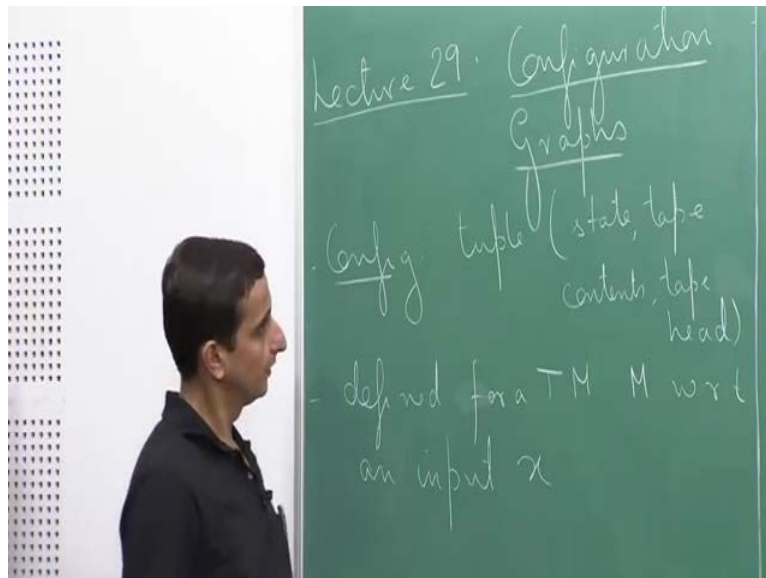 Lecture 29. Configuration
Graphs
. Config tuple (state, tape
contents, tape
head)
- defined for a TM M wrt
an input x